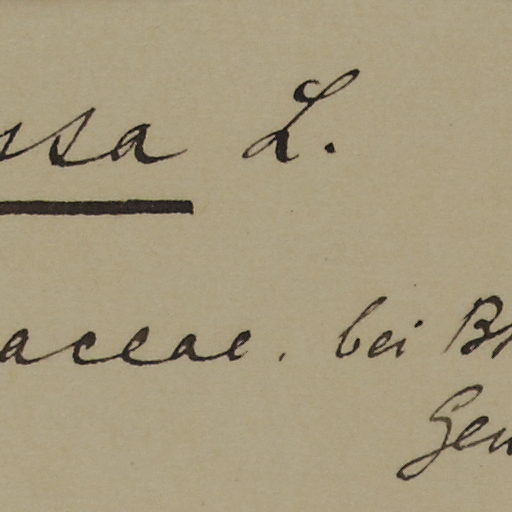 ssa L.
aceae. bei Br
Gen